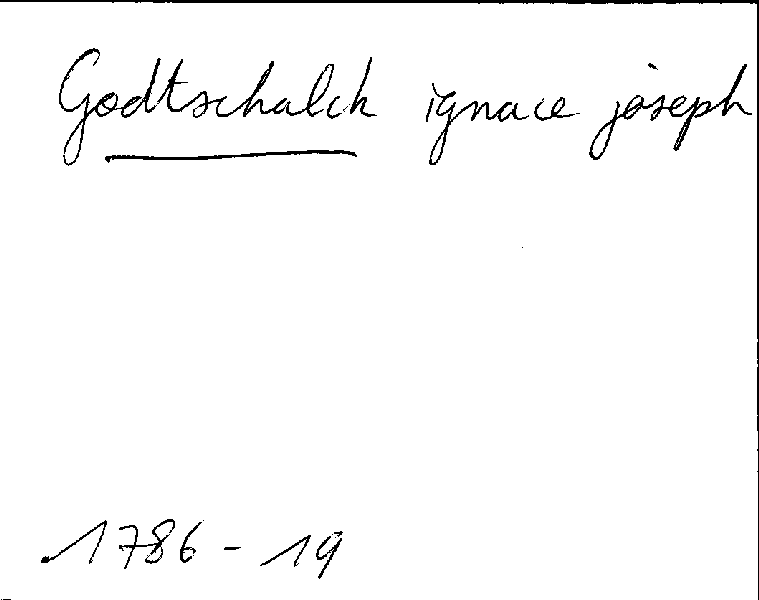 Godtschalck ignace joseph
1786 - 19